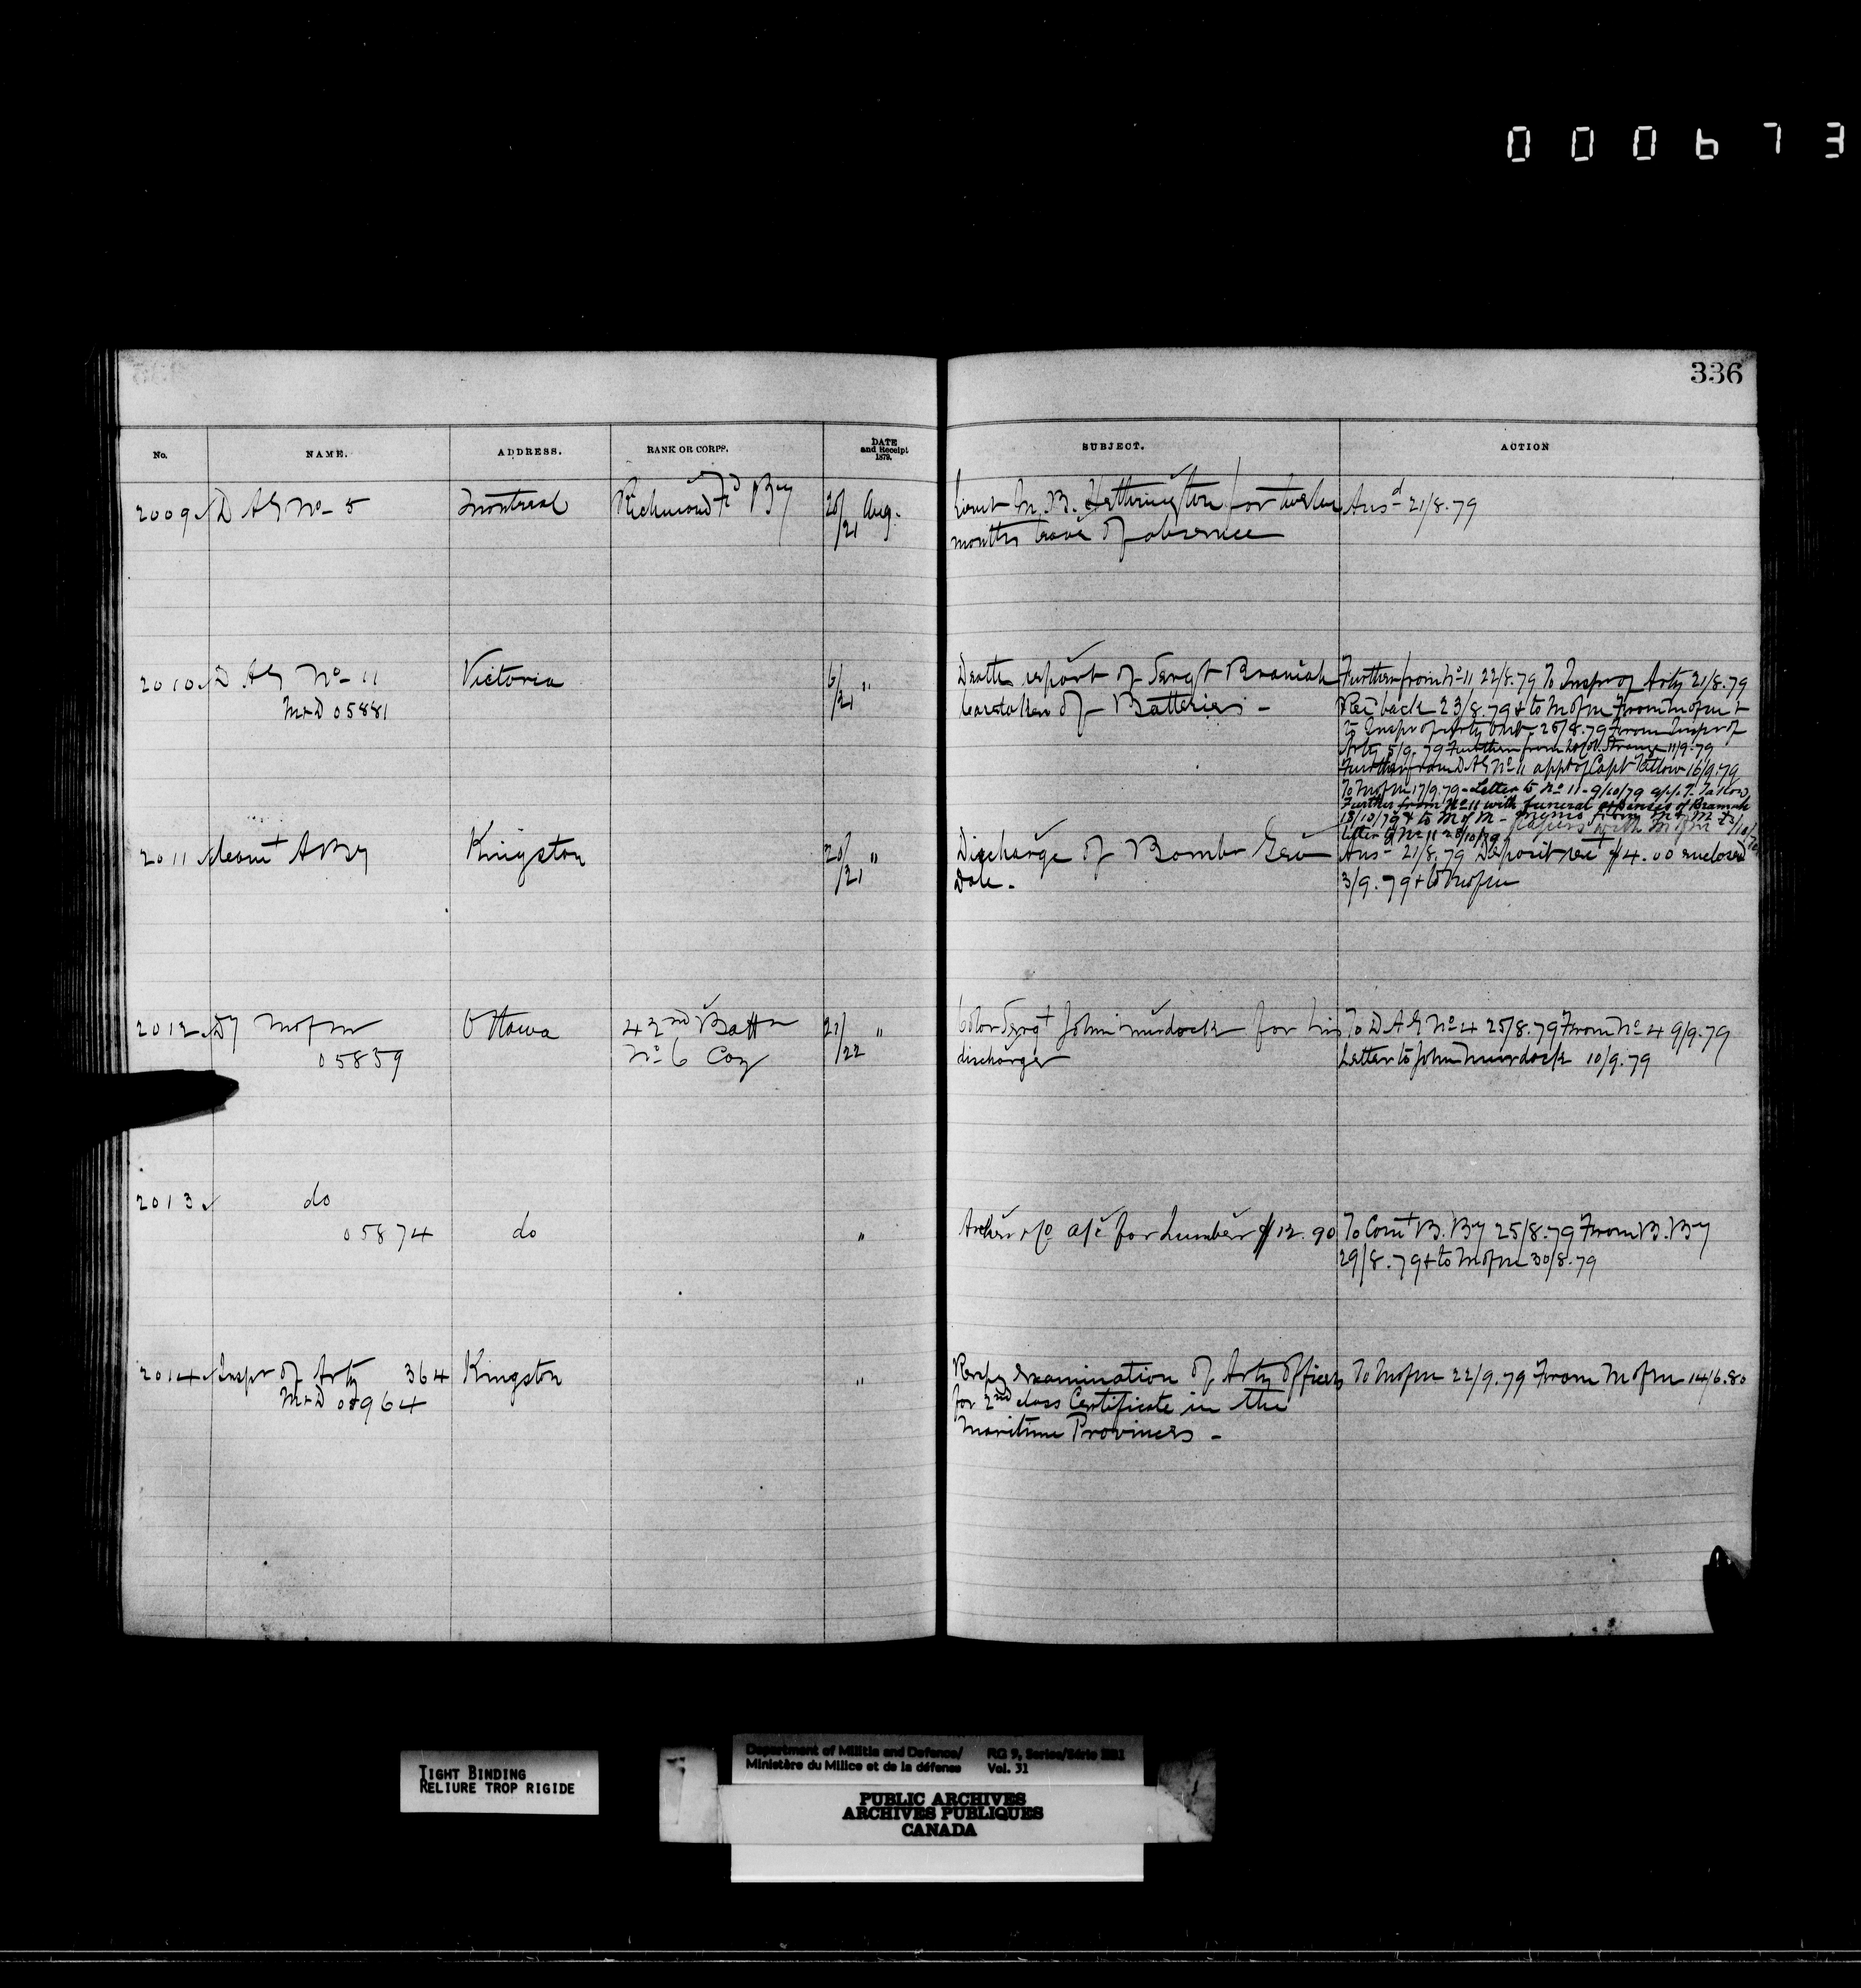 000673
336
No. NAME. ADDRESS. RANK OR CORPS. DATE and Receipt 1879. SUBJECT. ACTION
2009 D A G No 5 Montreal Richmond Fd By 20/21 Aug. Lieut M. B. Hetherington for twelve Ansd 21/8.79
months leave of absence
2010 D. A G No 11 Victoria 6/21 " Death report of Sergt Bramah Further from No 11 22/8.79 To Inspr of Arty 21/8.79
M&D 05881 Caretaker of Batteries - Rec back 23/8.79 & to M of M From M of M &
to Inspr of Arty Ont 25/8.79 From Inspr of
Arty 5/9.79 Further from Lt Col. Strange 11/9.79
Further from D A G No 11 appt of Capt Tatlow 16/9.79
To M of M 17/9.79 - Letter to No 11 - 9/10/79 T. Tatlow,
Further from No 11 with funeral expenses of Bramah
18/10/79 & to M of M - memo from M & M
Letter to No 11 28/10/79 Papers with M of M
2011 Comt A By Kingston 20/21 " Discharge of Bombr Geo Ans 21/8.79 Deposit rect $4.00 enclosed
Dale. 3/9.79 & to M of M
2012 Dy M of M Ottawa 42nd Battn 21/22 " Color Sergt John Murdock for his To D A G No 4 25/8.79 From No 4 9/9.79
05859 No 6 Coy discharge Letter to John Murdock 10/9.79
2013 do
05874 do " Archer & Co a/c for Lumber $12.90 To Comt B. By 25/8.79 From B. By
29/8.79 & to M of M 30/8.79
2014 Inspr of Arty 364 Kingston " Respg Examination of Arty Officers To M of M 22/9.79 From M of M 14/6.80
M&D 08964 for 2nd class Certificate in the
Maritime Provinces -
TIGHT BINDING
RELIURE TROP RIGIDE
Department of Militia and Defence/ RG 9, Series/Série IIB1
Ministère du Milice et de la défense Vol. 31
PUBLIC ARCHIVES
ARCHIVES PUBLIQUES
CANADA